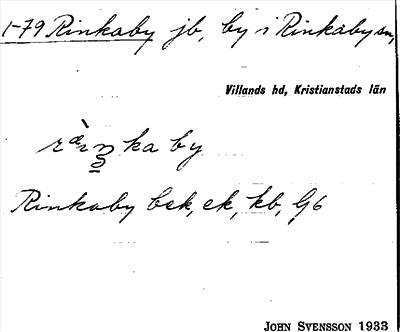 1-79 Rinkaby jb, by i Rinkaby sn,
Villands hd, Kristianstads län
Rinkaby bsk, ek, kb, G6
JOHN SVENSSON 1933